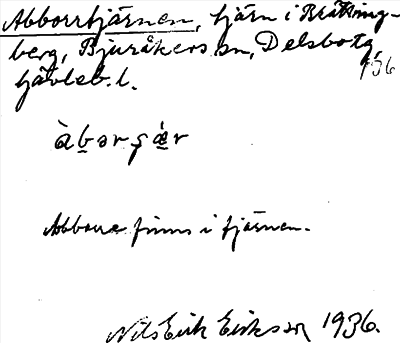 Abborrtjärnen, tjärn i Bräkning-
berg, Bjuråkers sn, Delsbotg,
gävleb. l.
136
Abborre finns i tjärnen.
Nils Erik Eriksson 1936.